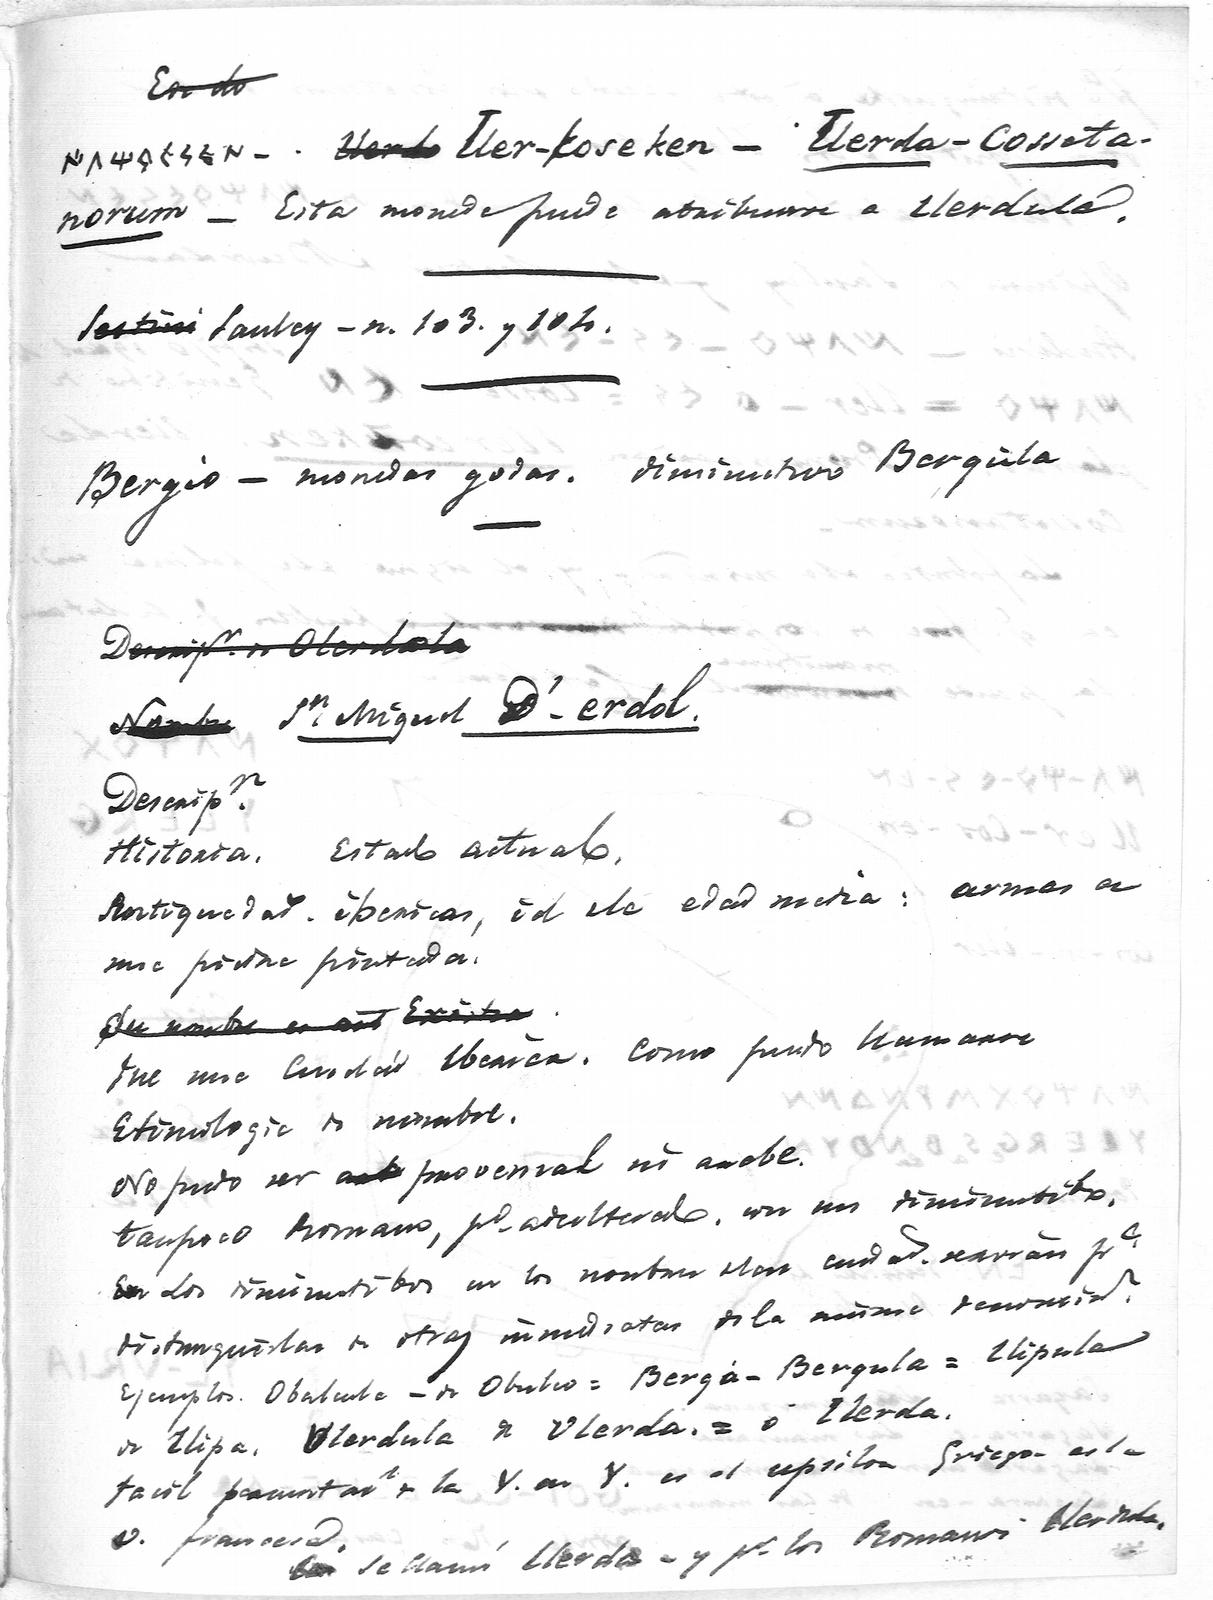 En do
- Ilerda Iler-koseken - Ilerda-Cosseta-
norum - Esta moneda puede atribuirse a Ilerdula.
Sestini Saulcy - n. 103. y 104.
Bergio - monedas godas. diminutivo Bergula
Descripn. de Olerdola
Nombre Sn Miguel D'-erdol.
Descripn.
Historia. Estado actual.
Antiguedad. ibericas, id de edad media: armas a
una piedra pintada.
Su nombre es ant Existia
Fue una Ciudad Iberica. Como pudo llamarse
Etimologia de nombre.
No pudo ser provensal ni arabe.
tampoco Romano, pd. adulterado. con un diminutibo.
En Los diminutibos en los nombres de las ciudad. servian pa.
distinguirlas de otras inmediatas de la misma denominn.
Ejemplos. Obulcula - de Obulco = Berga - Bergula = Ilipula
de Ilipa. Ulerdula de Ulerda. = o Ilerda.
facil la Y. en Y. es el upsilon Griego es la
u. francesa.
Se llamó Ilerda - y pr. los Romanos Ilerdula.